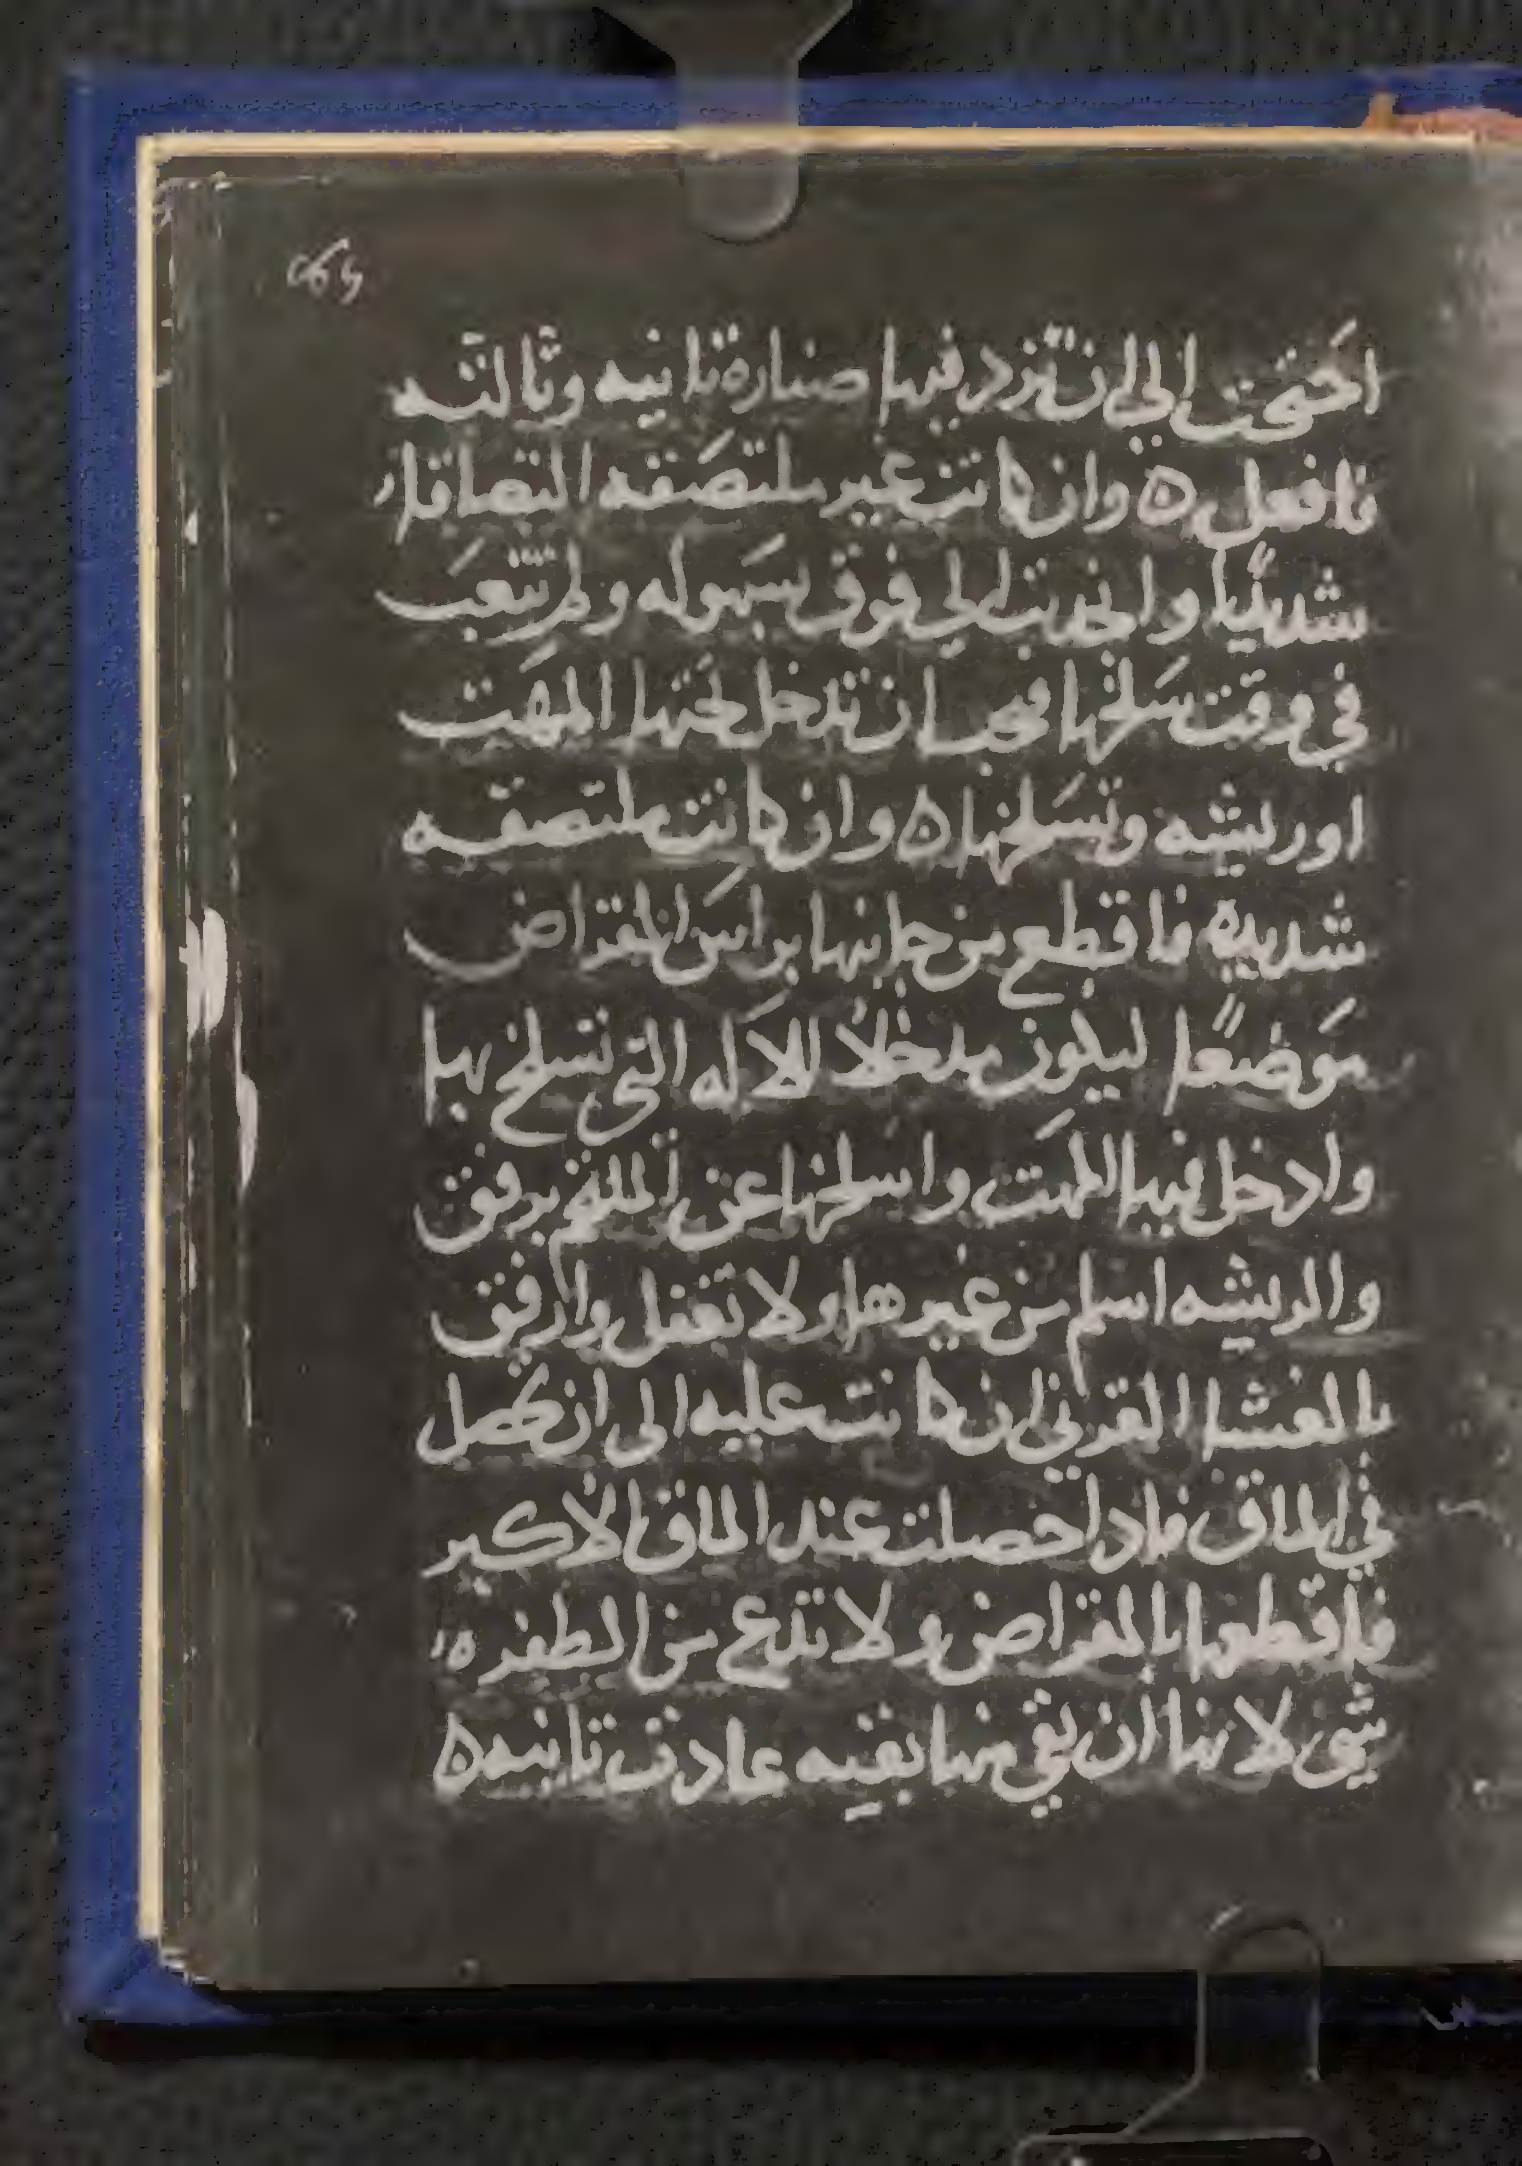 احتجت الي ان تزد فيها صناره تانيه وثالثه
فافعل ه وان كانت غير ملتصقه التصاقا
شديدًا وانجدبت الي فوق بسهوله ولم تتعب
في وقت سلخها فيجب ان تدخل تحتها المهت
او ريشه وتسلخها ه وان كانت ملتصقه
شديده فاقطع من جانبها براس المقراض
موضعًا ليكون مدخلًا للاله التي تسلخ بها
وادخل فيها المهت واسلخها عن الملتحم برفق
والريشه اسلم من غيرها ولا تغفل وارفق
بالغشا القرني ان كانت عليه الى ان تحصل
في الماق فادا حصلت عند الماق الاكبر
فاقطعها بالمقراض ولا تدع من الطفره
شي لانها ان بقي منها بقيه عادت تانيه ه